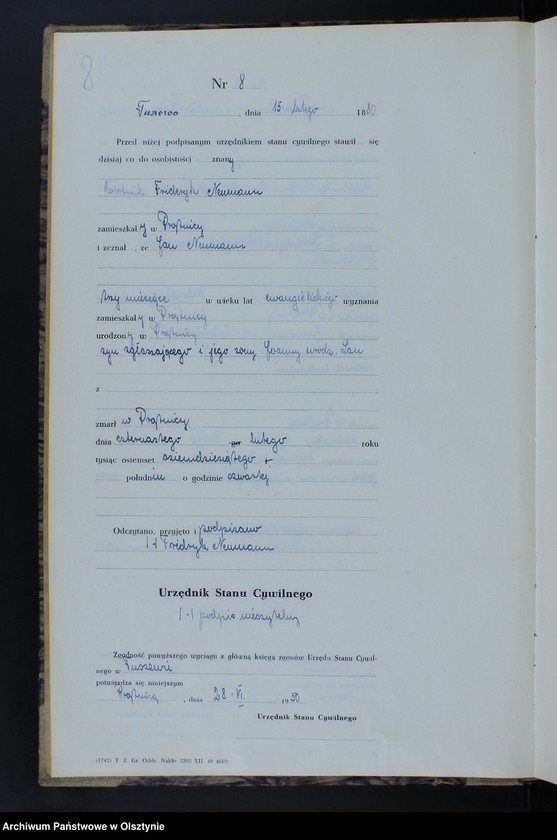 8
Nr 8
Tuszewo, dnia 15 lutego 1880
Przed niżej podpisanym urzędnikiem stanu cywilnego stawił się
dzisiaj co do osobistości znany
Robotnik Frideryk Neumann
zamieszkały w Prątnicy
i zeznał, że Jan Neumann
trzy miesiące w wieku lat ewangielickiego wyznania
zamieszkały w Prątnicy
urodzony w Prątnicy
syn zgłaszającego i jego żony Joanny urodz. Lau
z
zmarł w Prątnicy
dnia czternastego go lutego roku
tysiąc osiemset osiemdziesiątego
południu o godzinie czwartej
Odczytano, przyjęto i podpisano
/-/ Fridryk Neumann
Urzędnik Stanu Cywilnego
/-/ podpis nieczytelny
Zgodność powyższego wyciągu z główną księgą zgonów Urzędu Stanu Cywil-
nego w Tuszewie
potwierdza się niniejszym
Prątnica, dnia 28-VI. 1950
Urzędnik Stanu Cywilnego
(1742) T. Z. Gr. Oddz. Nakło 3202 XII. 49 4669
Archiwum Państwowe w Olsztynie